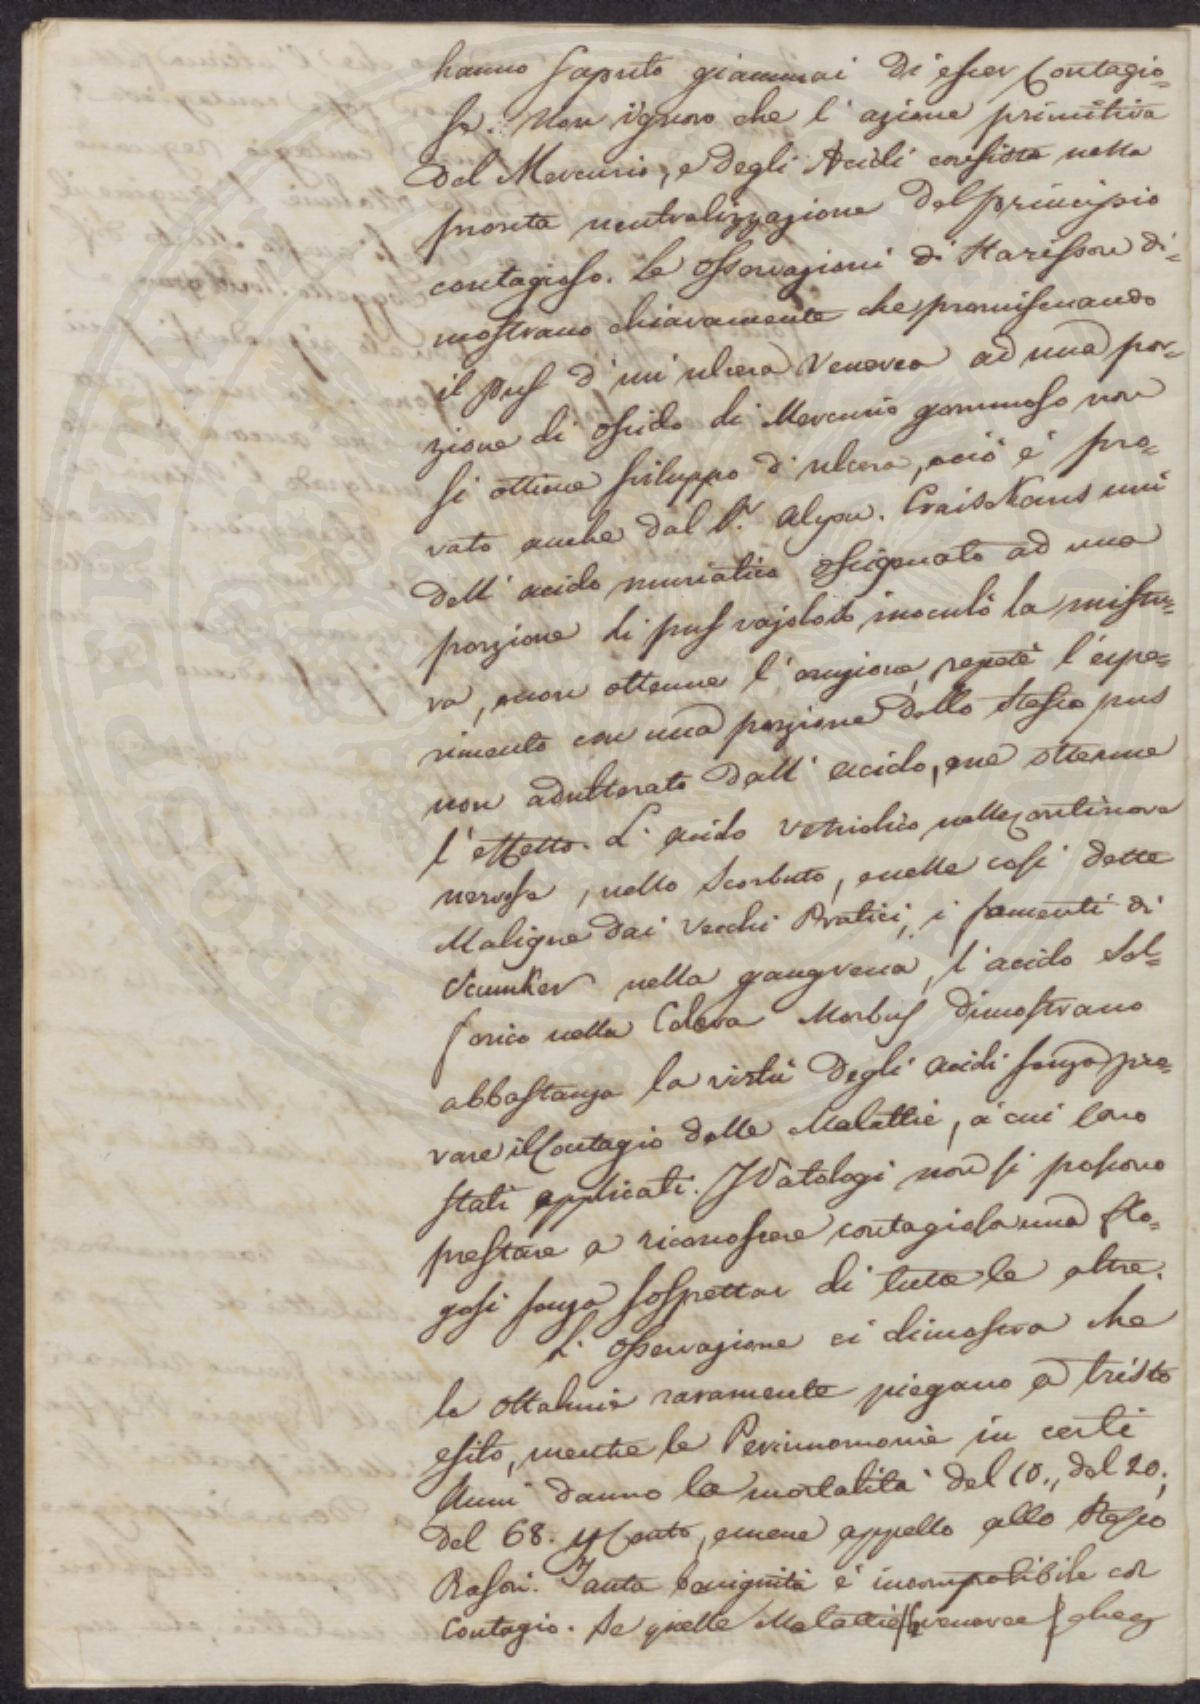 hanno saputo giammai di esser Contagio=
se. Non ignoro che l'azione primitiva
del Mercurio, e degli Acidi consista nella
pronta neutralizzazione del principio
contagioso. Le osservazioni di Harisson di=
mostrano chiaramente che promiscuando
il pus d'un ulcera Venerea ad una por=
zione di ossido di Mercurio gommoso non
si ottiene sviluppo d'ulcera, e ciò è pro=
vato anche dal Alyon. Cruisckans uni
dell'acido muriatico ossigenato ad una
porzione di pus vajoloso inoculò la mistu=
ra, e non ottenne l'eruzione, repetè l'espe=
rimento con una porzione dello stesso pus
non adulterato dall'acido, e ne ottenne
l'effetto. L'acido vetriolico nelle continova
nervosa, nello Scorbuto, e nelle così dette
Maligne dai vecchi Pratici, i fomenti di
Scumker nella gangrena, l'acido Sol=
forico nella Colera Morbus dimostrano
abbastanza la virtù degli acidi senza pro=
vare il Contagio delle Malattie, a cui sono
stati applicati. I Patologi non si possono
prestare a riconoscere contagiosa una flo=
gosi senza sospettar di tutte le altre.
L'osservazione ci dimostra che
le ottalmie raramente piegano a tristo
esito, mentre le Perinnomonie in certi
Anni danno la mortalità del 10., del 20,
del 68. p Cento, e mene appello allo stesso
Rasori. Tanta benignità è incompatibile col
Contagio. Se quelle Malattie veneree